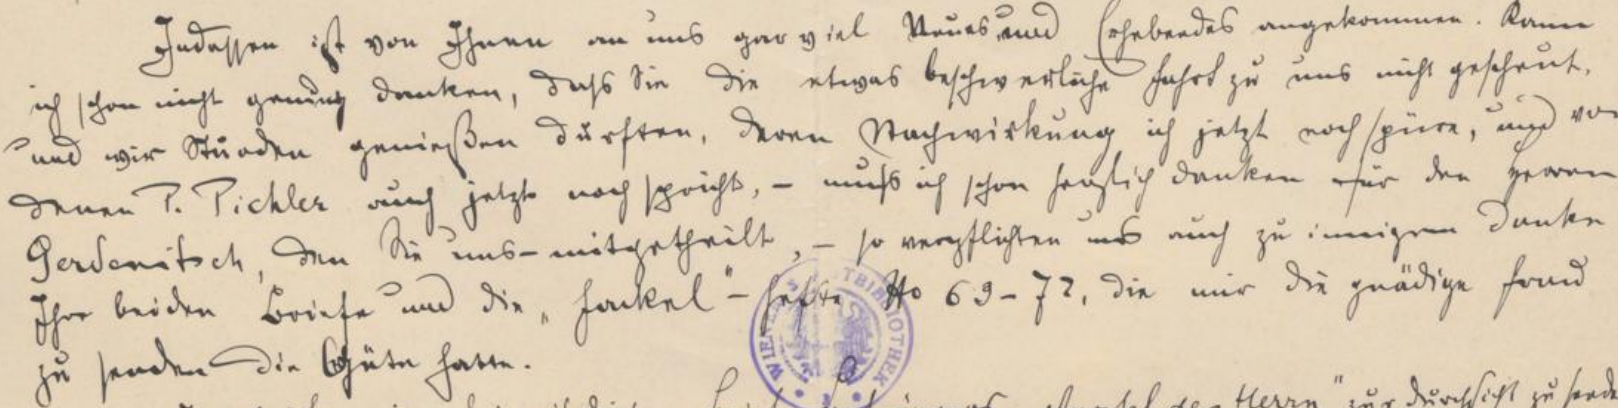 Indessen ist von Ihnen an uns gar viel Neues und Erhebendes angekommen. Kann
ich schon nicht genug danken, dass Sie die etwas beschwerliche Fahrt zu uns nicht gescheut,
und wir Stunden genießen durften, deren Nachwirkung ich jetzt noch spüre, und von
denen P. Pichler auch jetzt noch spricht, – muss ich schon herzlich danken für den Herren
Gerdenitsch, den Sie uns mitgetheilt, – so verpflichten uns auch zu innigem Danke
Ihre beiden Briefe und die „Fackel“ – Hefte No 69–72, die mir die gnädige Frau
zu senden die Güte hatte.
Herrn" zur Durchsicht zu
WIEN BIBLIOTHEK